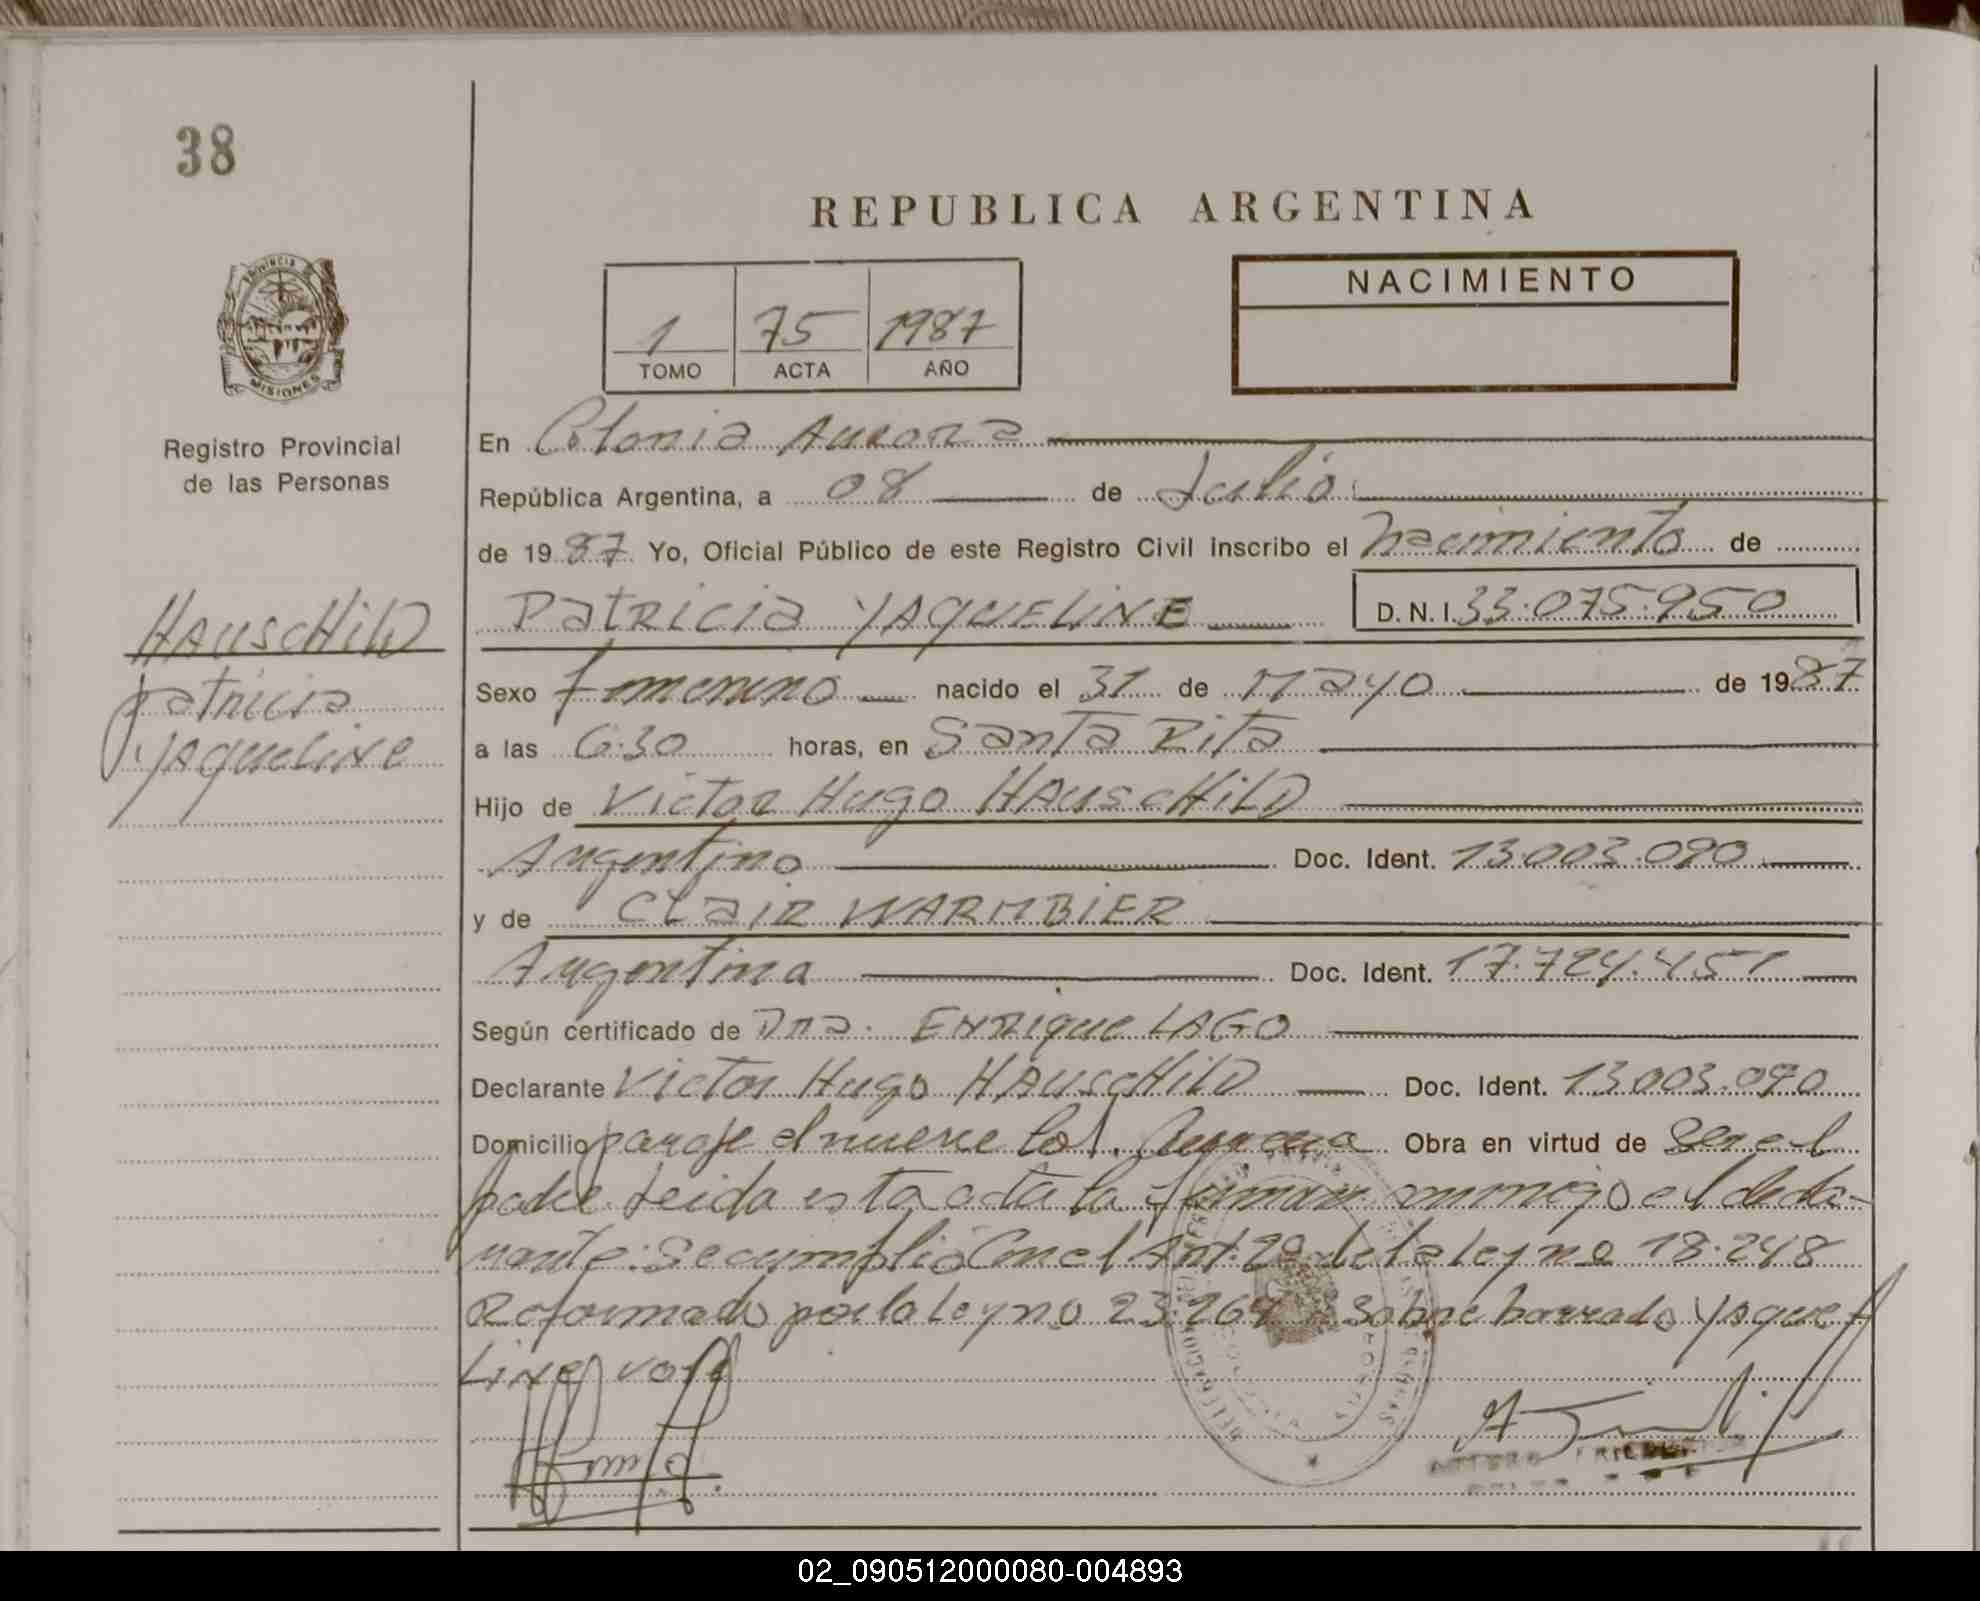 38
REPUBLICA ARGENTINA
PROVINCIA DE
MISIONES
Registro Provincial
de las Personas
NACIMIENTO
1 75 1987
TOMO ACTA AÑO
En Colonia Aurora
República Argentina, a 08 de Julio
de 1987 Yo, Oficial Público de este Registro Civil inscribo el nacimiento de
Patricia YAQUELINE D. N. I. 33.075.950
HAUSCHILD
Patricia
YAQUELINE
Sexo femenino nacido el 31 de Mayo de 1987
a las 6:30 horas, en Santa Rita
Hijo de Victor Hugo HAUSCHILD
Argentino Doc. Ident. 13.003.090
y de Clair WARMBIER
Argentina Doc. Ident. 17.724.451
Según certificado de Dra. ENRIQUE LAGO
Declarante Victor Hugo HAUSCHILD Doc. Ident. 13.003.090
Domicilio paraje el nueve Col. Aurora Obra en virtud de Ser el
padre Leida esta acta la firman conmigo el decla-
rante: Se cumplió Con el Art. 20 de la Ley no 18.248
Reformado por la Ley no 23.264 Sobre borrado Yaque
Line vale
ARTURO
02_090512000080-004893